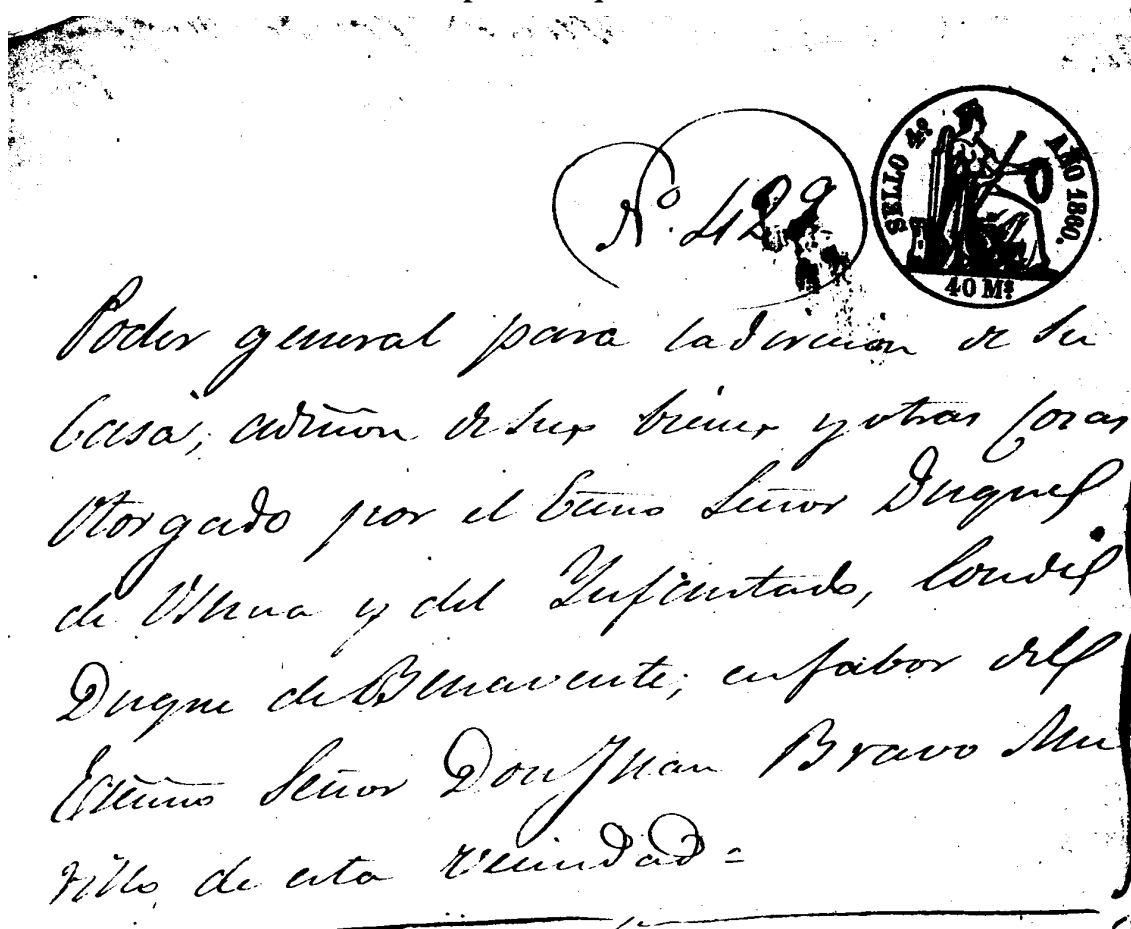 Nº. 429
SELLO 4º AÑO 1860.
40 Mˢ
Poder general para la direccion de su
Casa, admon de sus bienes y otras cosas
Otorgado por el Excmo Señor Duque
de Osuna y del Infantado, Conde
Duque de Benavente, en fabor del
Excmo Señor Don Juan Bravo Mu
rillo, de esta vecindad =